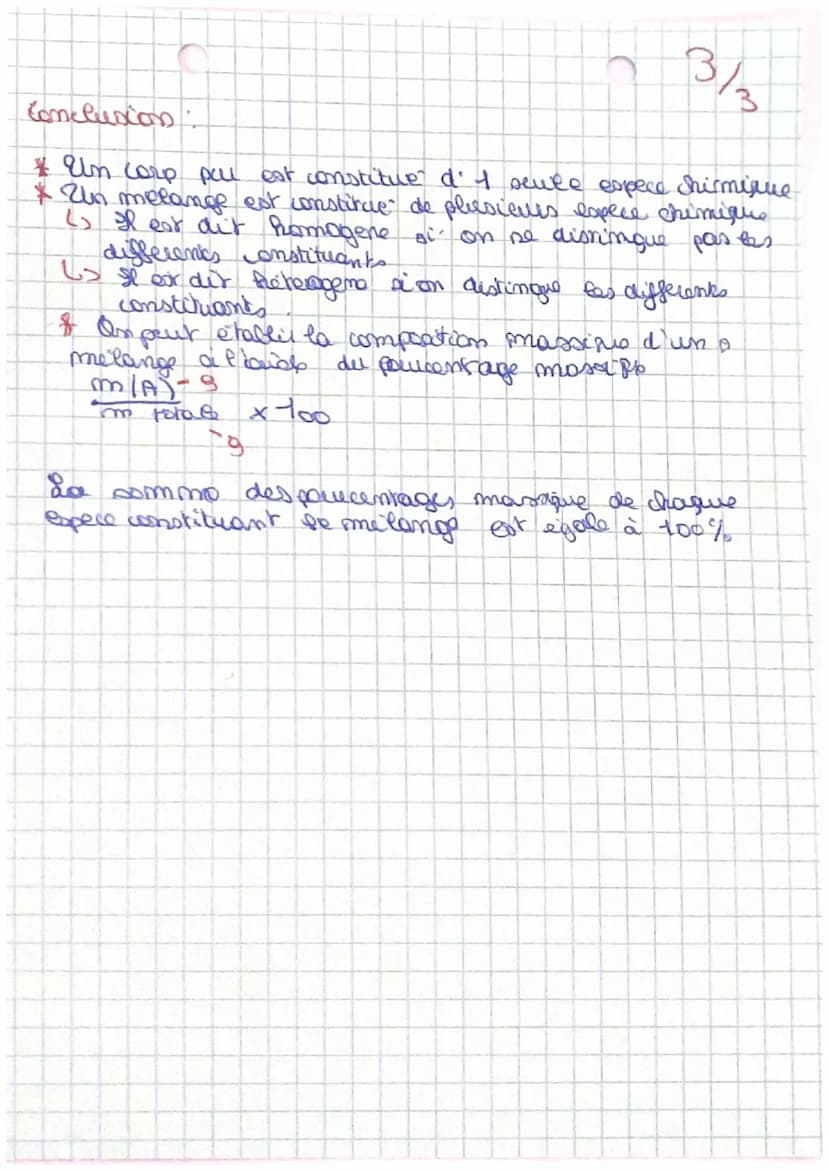 3/3
Conclusion :
* Un corp pu est constitué d'1 seule espece chimique
* Un melange est constitué de plusieurs espece chimique
↳ Il est dit homogene si on ne disningue pas les
differents constituants
↳ Il est dit heterogene si on distingue les differents
constituants.
* On peut établir la compostion massique d'un
mélange à l'aide du poucentage
m(A) - g
m totale x 100
- g
La somme des poucentages massique de chaque
espece constituant le mélange est égale à 100%